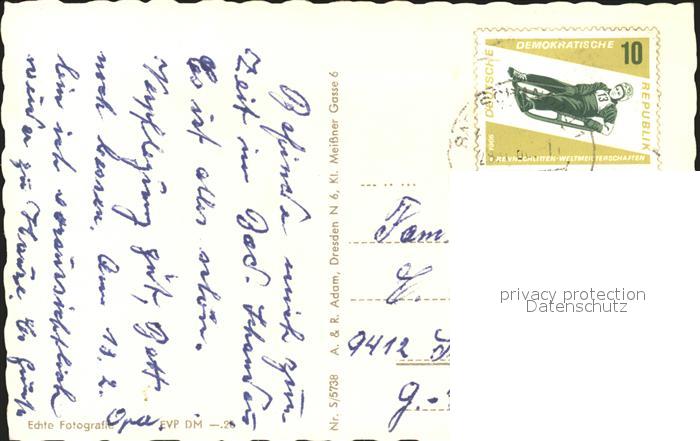 Befinde mich zur
Zeit in Bad. Schandau
Es ist alles schön.
Verpflegung gut, Bett
noch besser. Am 13.2.
bin ich voraussichtlich
wieder zu Hause. Es grüßt
Opa.
Echte Fotografie
EVP DM —.20
Nr. S/5738 A. & R. Adam, Dresden N 6, Kl. Meißner Gasse 6
DEUTSCHE DEMOKRATISCHE REPUBLIK
10
1966
RENNSCHLITTEN-WELTMEISTERSCHAFTEN
Fam
9412
privacy protection
Datenschutz